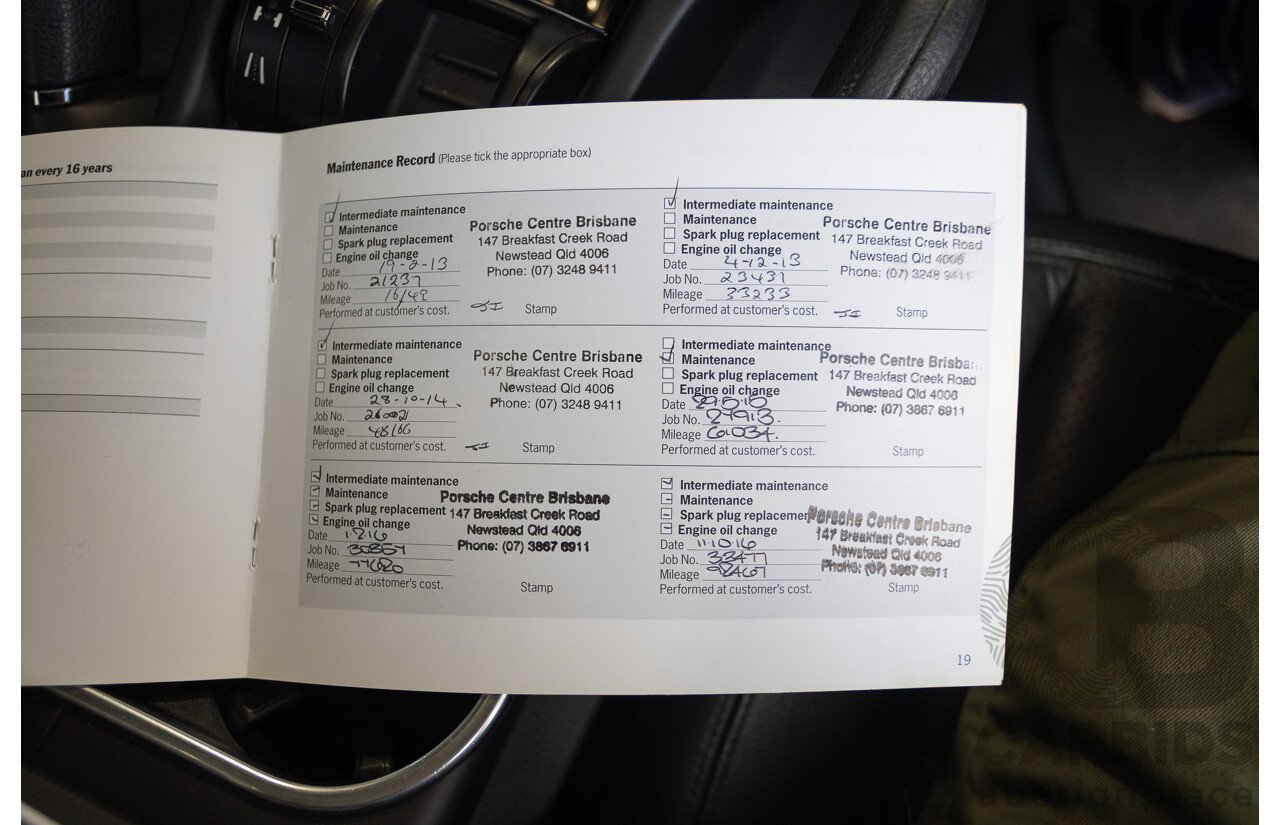 an every 16 years
Maintenance Record (Please tick the appropriate box)
Intermediate maintenance
Maintenance
Spark plug replacement
Engine oil change
Date 19-2-13
Job No. 21237
Mileage
Performed at customer's cost.
Porsche Centre Brisbane
147 Breakfast Creek Road
Newstead Qld 4006
Phone: (07) 3248 9411
Stamp
Intermediate maintenance
Maintenance
Spark plug replacement
Engine oil change
Date 4-12-13
Job No. 23431
Mileage 33233
Performed at customer's cost.
Porsche Centre Brisbane
147 Breakfast Creek Road
Newstead Qld 4006
Phone: (07) 3248 9411
Stamp
Intermediate maintenance
Maintenance
Spark plug replacement
Engine oil change
Date 28-10-14
Job No.
Mileage 48166
Performed at customer's cost.
Porsche Centre Brisbane
147 Breakfast Creek Road
Newstead Qld 4006
Phone: (07) 3248 9411
Stamp
Intermediate maintenance
Maintenance
Spark plug replacement
Engine oil change
Date
Job No. 27913.
Mileage
Performed at customer's cost.
Porsche Centre Brisba
147 Breakfast Creek Road
Newstead Qld 4006
Phone: (07) 3867 6911
Stamp
Intermediate maintenance
Maintenance
Spark plug replacement
Engine oil change
Date 1.2.16
Job No.
Mileage
Performed at customer's cost.
Porsche Centre Brisbane
147 Breakfast Creek Road
Newstead Qld 4006
Phone: (07) 3867 6911
Stamp
Intermediate maintenance
Maintenance
Spark plug replacemen
Engine oil change
Date 11.10.16
Job No. 33477
Mileage
Performed at customer's cost.
Porsche Centre Brisbane
147 Breakfast Creek Road
Newstead Qld 4006
Phone: (07) 3867 6911
Stamp
19
CARBIDS
auction place